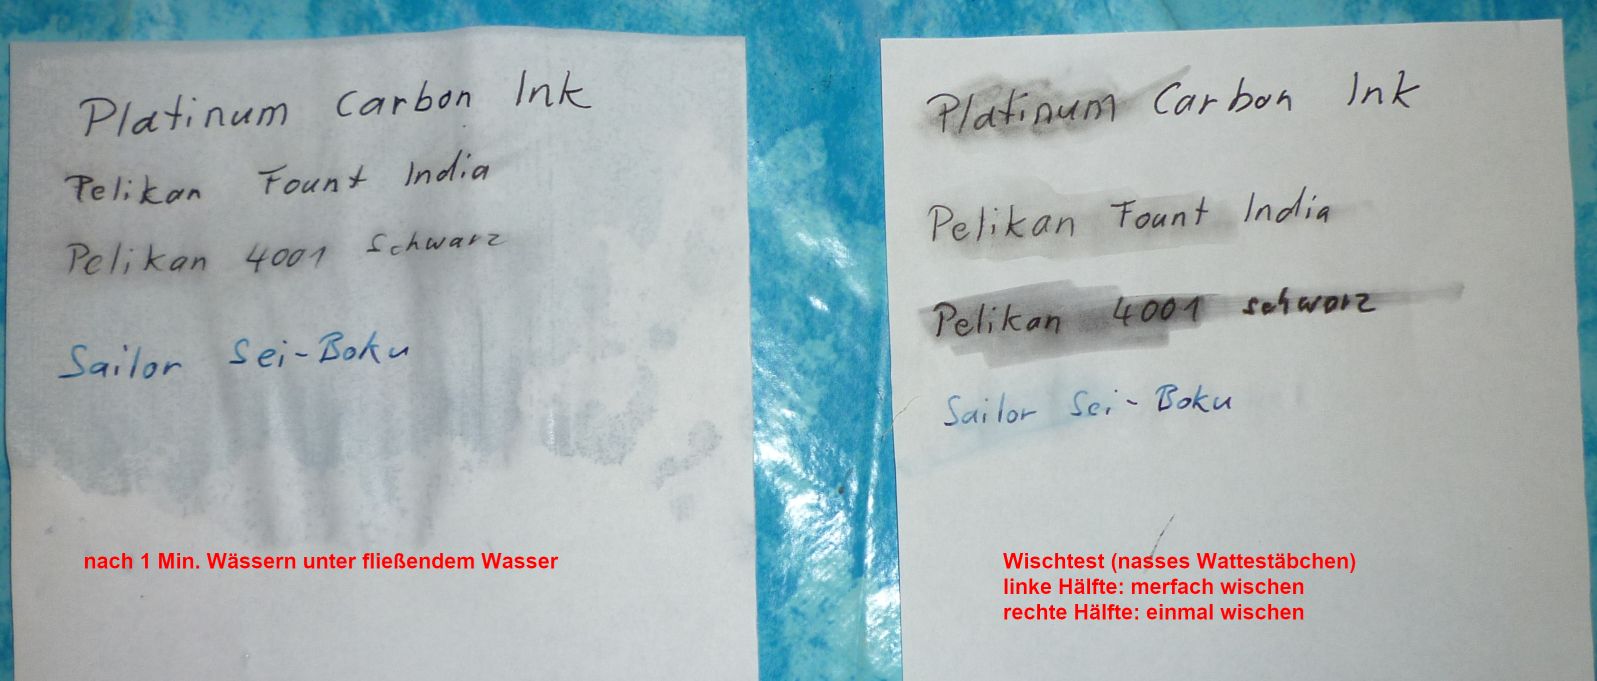 Platinum Carbon Ink
Pelikan Fount India
Pelikan 4001 Schwarz
Sailor Sei-Boku
nach 1 Min. Wässern unter fließendem Wasser
Platinum Carbon Ink
Pelikan Fount India
Pelikan 4001 schwarz
Sailor Sei-Boku
Wischtest (nasses Wattestäbchen)
linke Hälfte: merfach wischen
rechte Hälfte: einmal wischen